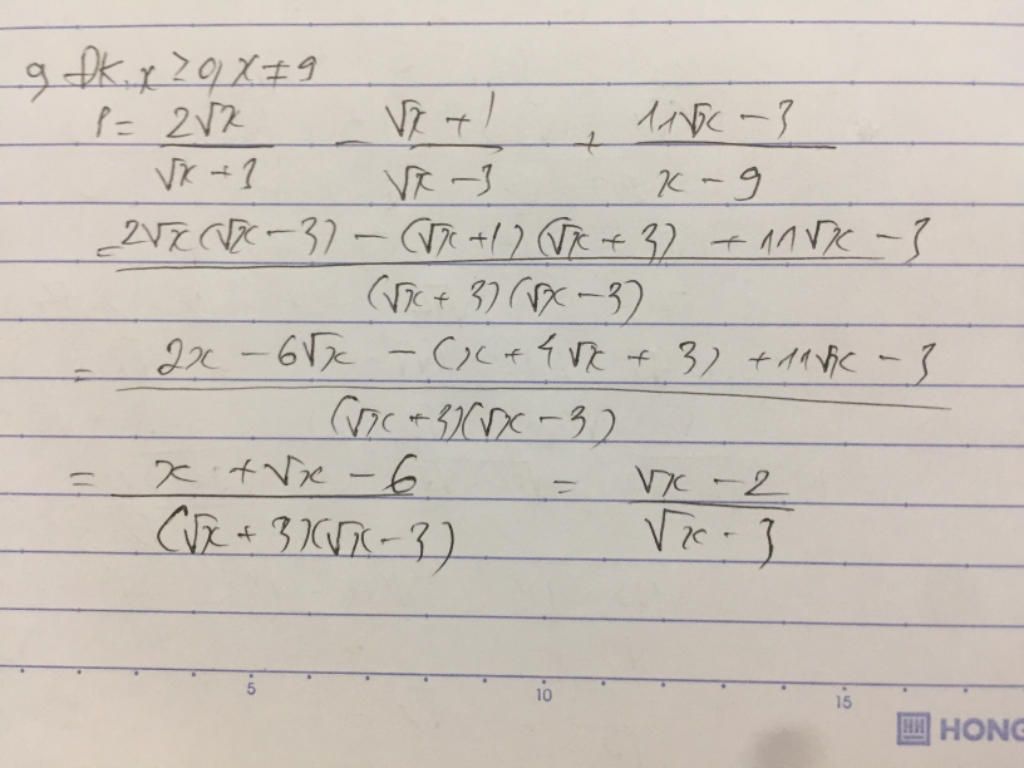 g ĐK: x ≥ 0, x ≠ 9
P = 2√x / (√x + 3) − (√x + 1) / (√x − 3) + (11√x − 3) / (x − 9)
= (2√x(√x − 3) − (√x + 1)(√x + 3) + 11√x − 3) / ((√x + 3)(√x − 3))
= (2x − 6√x − (x + 4√x + 3) + 11√x − 3) / ((√x + 3)(√x − 3))
= (x + √x − 6) / ((√x + 3)(√x − 3)) = (√x − 2) / (√x − 3)
5 10 15
HH HONG